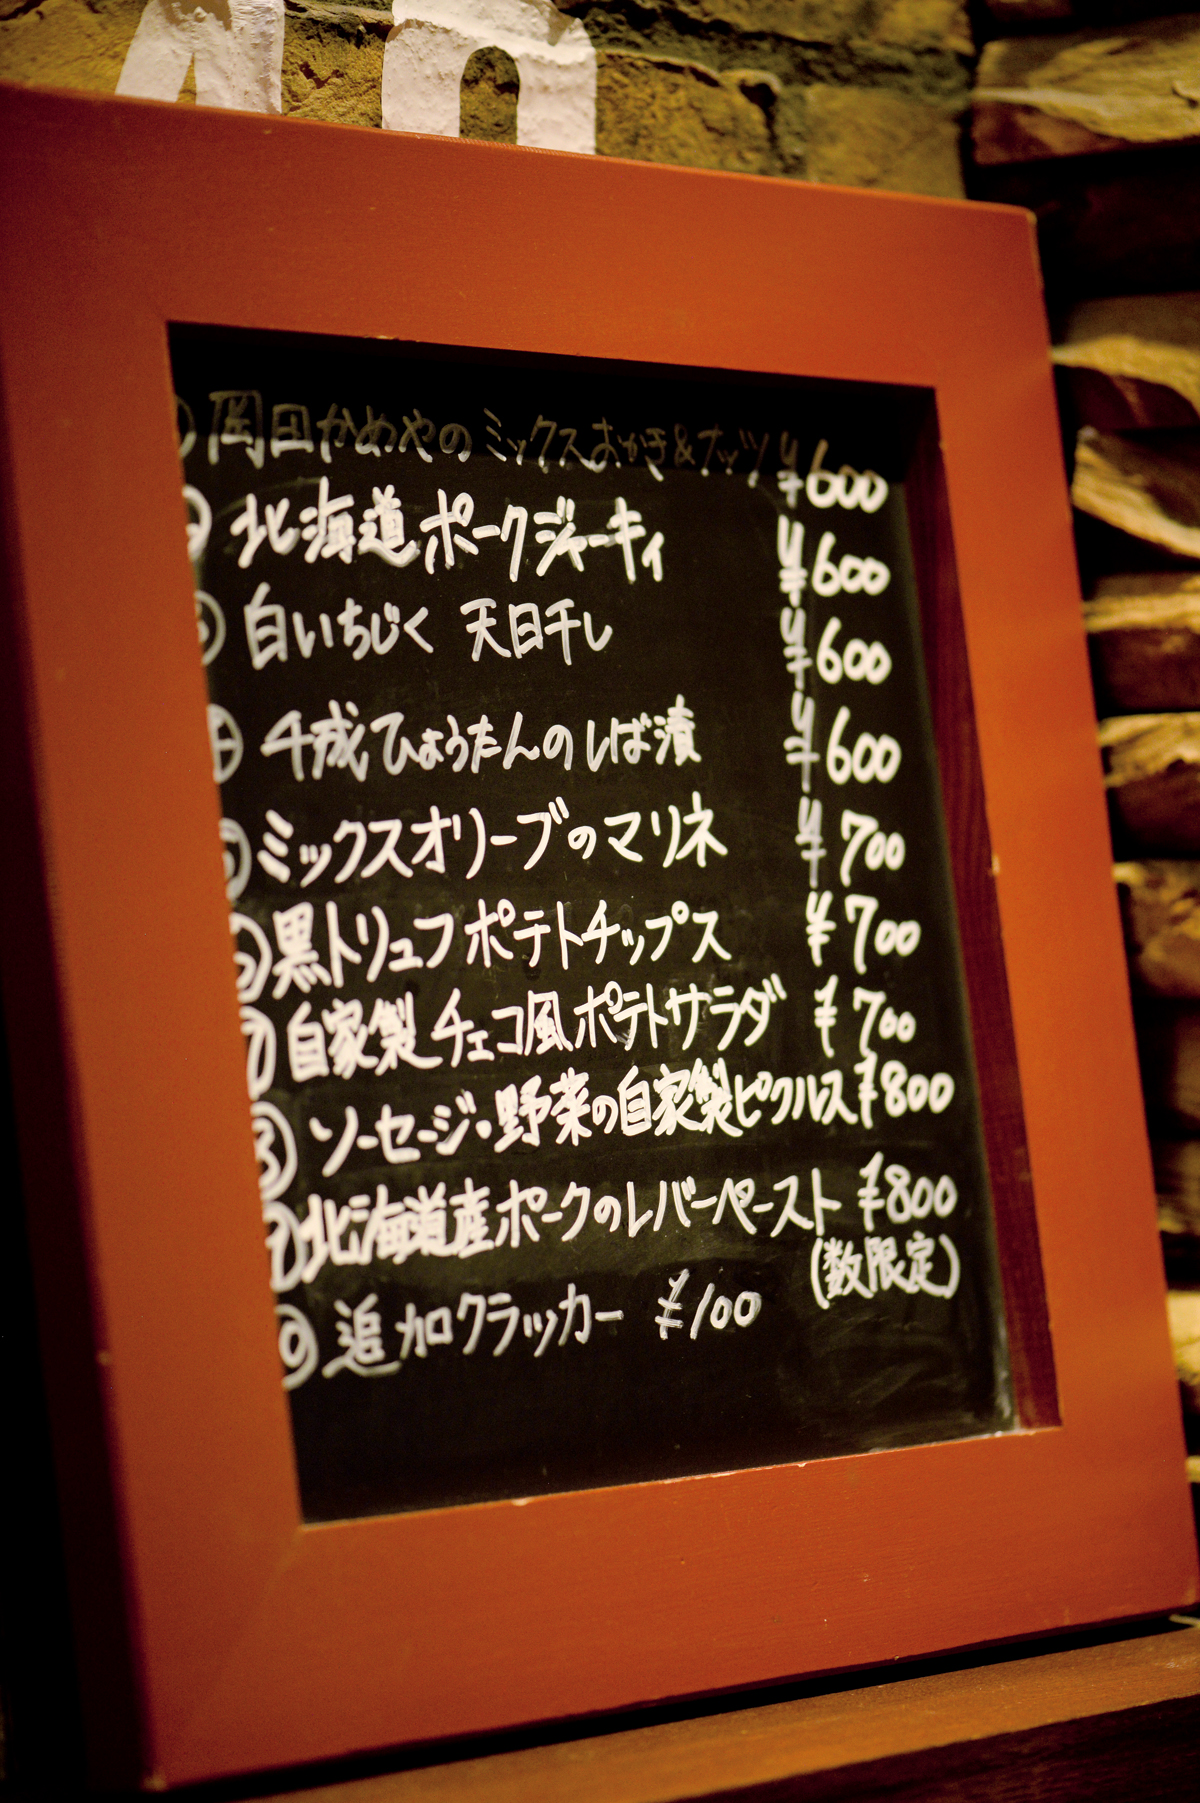 ① 岡田かめやのミックスおかき&ナッツ ¥600
② 北海道ポークジャーキィ ¥600
③ 白いちじく 天日干し ¥600
④ 千成ひょうたんのしば漬 ¥600
⑤ ミックスオリーブのマリネ ¥700
⑥ 黒トリュフポテトチップス ¥700
⑦ 自家製チェコ風ポテトサラダ ¥700
⑧ ソーセージ・野菜の自家製ピクルス ¥800
⑨ 北海道産ポークのレバーペースト ¥800
(数限定)
⑩ 追加クラッカー ¥100